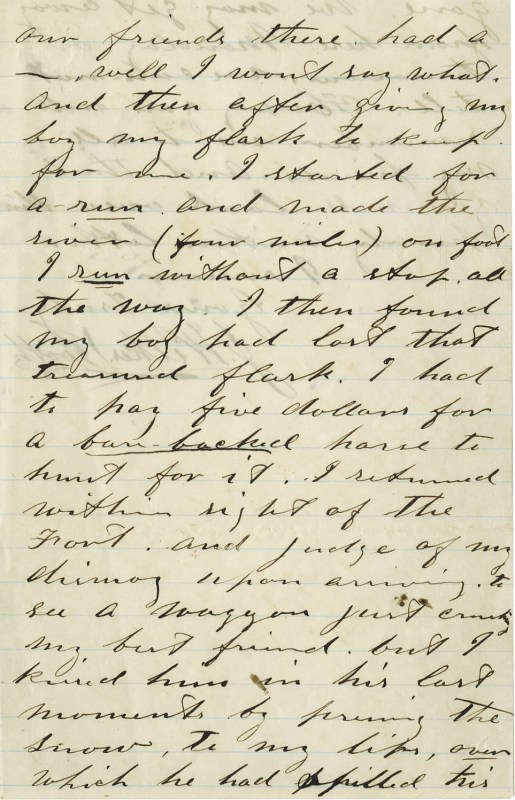 our friends there. had a
—, well I wont say what.
And then after giving my
boy my flask to keep
for me. I started for
a run and made the
river (four miles) on foot
I run without a stop. all
the way I then found
my boy had lost that
treasured flask. I had
to pay five dollars for
a bare-backed horse to
hunt for it. I returned
within sight of the
Fort. and judge of my
dismay upon arriving. to
see a waggon just crushing
my best friend. but I
kissed him in his last
moments by pressing the
snow, to my lips, over
which he had spilled his